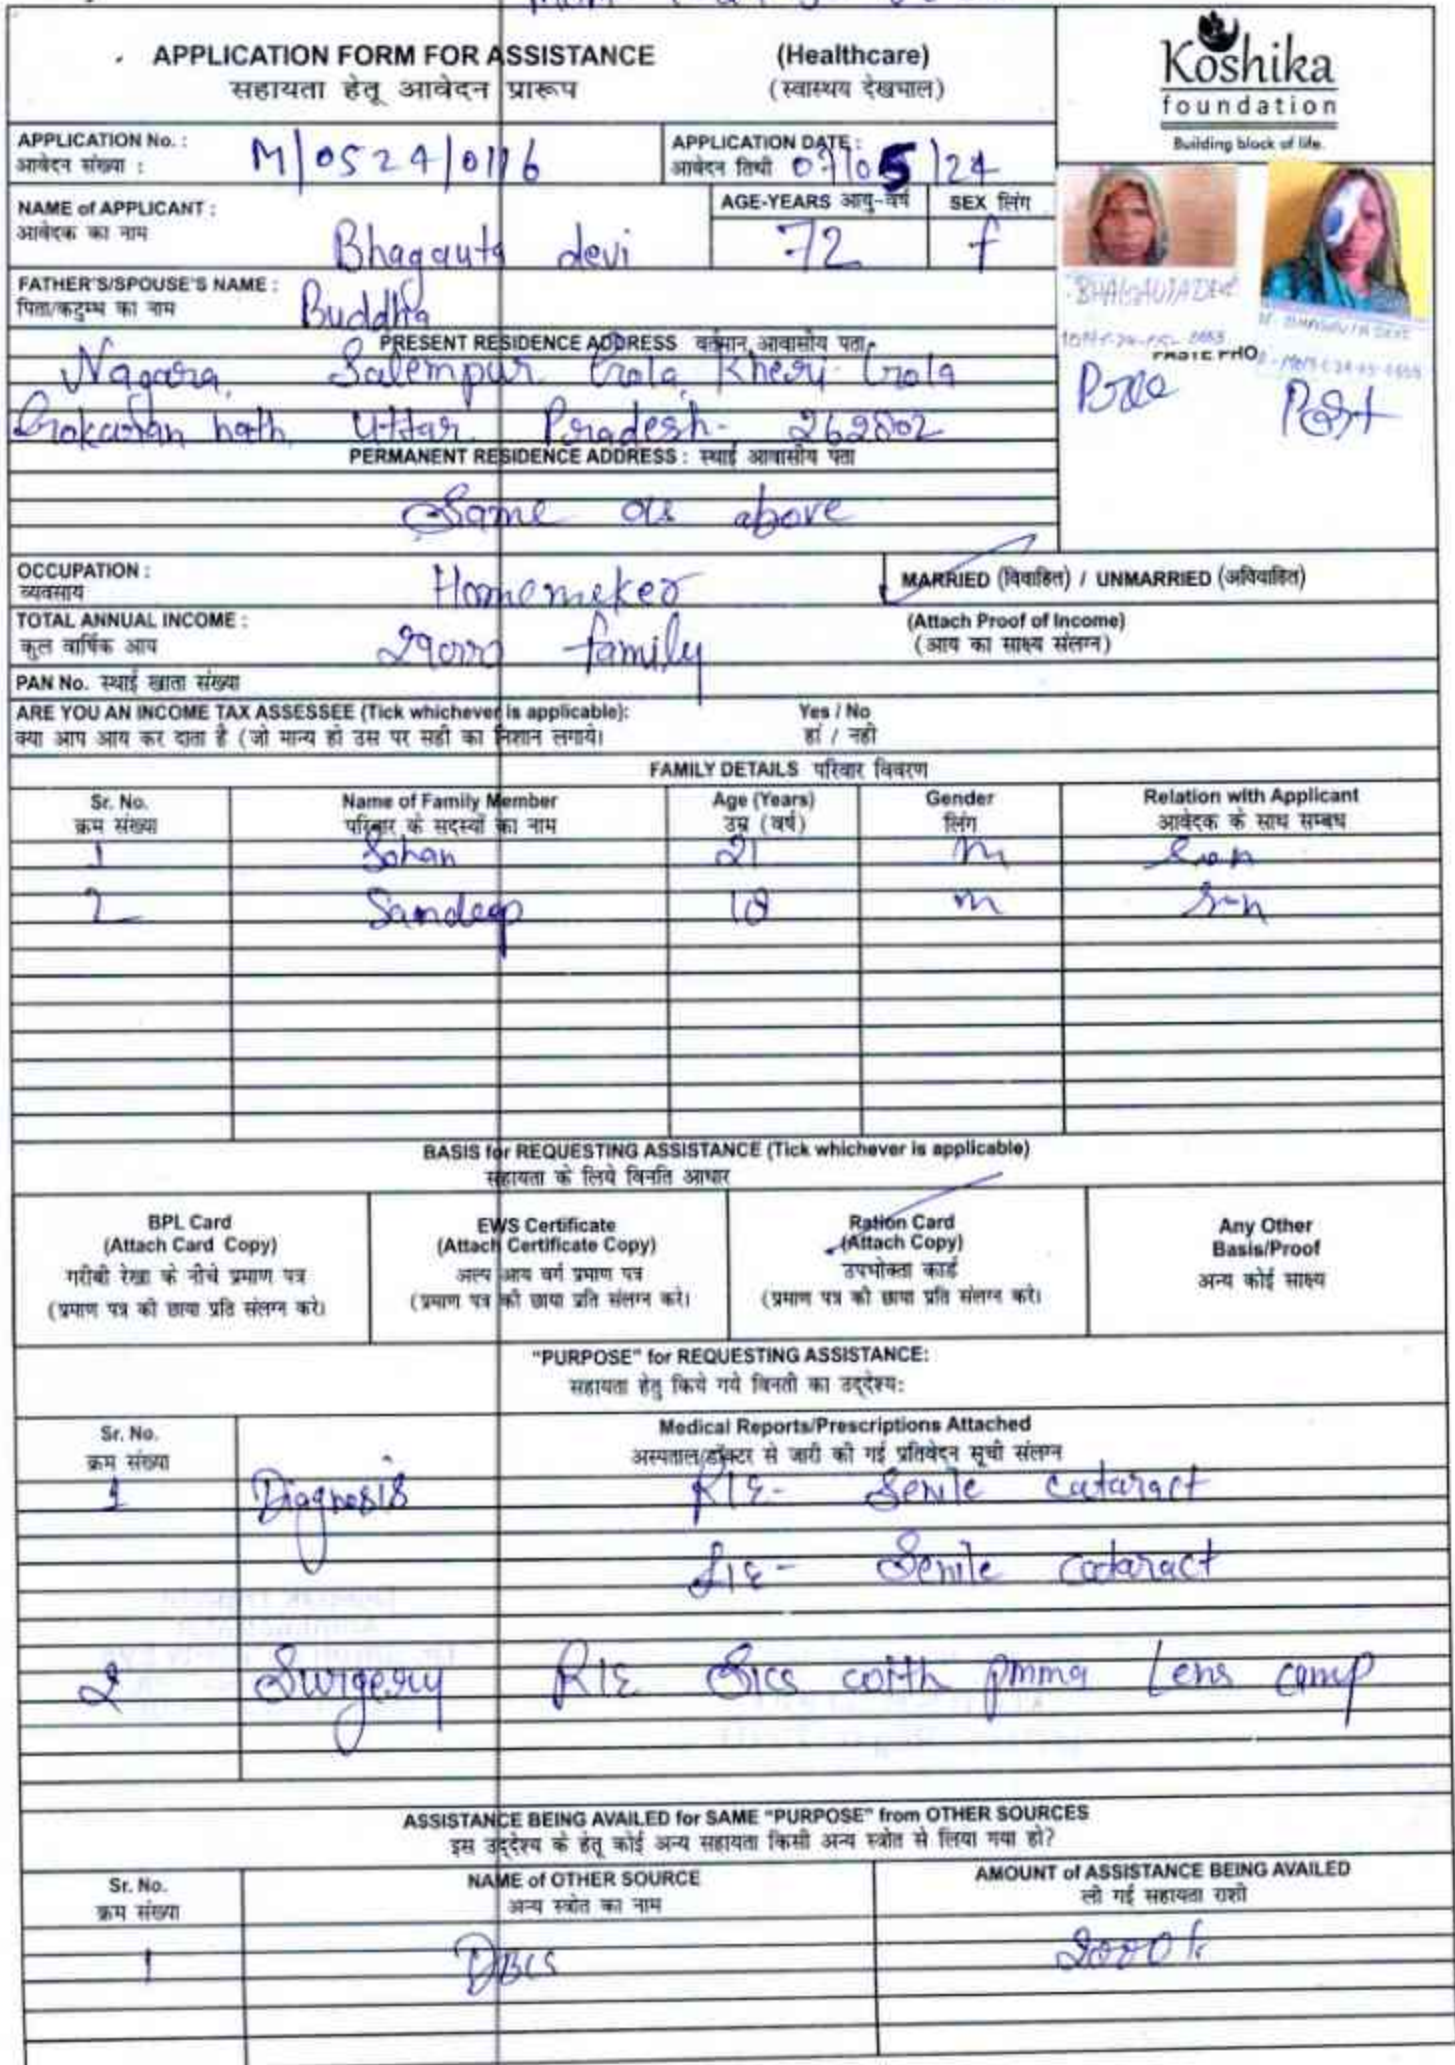 APPLICATION FORM FOR ASSISTANCE (Healthcare)
सहायता हेतू आवेदन प्रारूप (स्वास्थय देखभाल)
Koshika
foundation
Building block of life.
APPLICATION No. :
आवेदन संख्या :
M/0524/0116
APPLICATION DATE :
आवेदन तिथी 07/05/24
NAME of APPLICANT :
आवेदक का नाम
Bhagauta devi
AGE-YEARS आयु-वर्ष
72
SEX लिंग
f
FATHER'S/SPOUSE'S NAME :
पिता/कटुम्ब का नाम
Buddha
BHAGAUTA DEVI
PRESENT RESIDENCE ADDRESS वर्तमान आवासीय पता
Nagara, Salempur Gola, Kheri Gola
Gokaran nath Uttar Pradesh- 262802
Post
PERMANENT RESIDENCE ADDRESS : स्थाई आवासीय पता
Same as above
OCCUPATION :
व्यवसाय
Homemeker
MARRIED (विवाहित) / UNMARRIED (अविवाहित)
TOTAL ANNUAL INCOME :
कुल वार्षिक आय
family
(Attach Proof of Income)
(आय का साक्ष्य संलग्न)
PAN No. स्थाई खाता संख्या
ARE YOU AN INCOME TAX ASSESSEE (Tick whichever is applicable): Yes / No
क्या आप आय कर दाता है (जो मान्य हो उस पर सही का निशान लगाये। हां / नही
FAMILY DETAILS परिवार विवरण
Sr. No. Name of Family Member Age (Years) Gender Relation with Applicant
क्रम संख्या परिवार के सदस्यों का नाम उम्र (वर्ष) लिंग आवेदक के साथ सम्बध
1 Sohan 21 m Son
2 Sandeep 18 m Son
BASIS for REQUESTING ASSISTANCE (Tick whichever is applicable)
सहायता के लिये विनति आधार
BPL Card
(Attach Card Copy)
गरीबी रेखा के नीचे प्रमाण पत्र
(प्रमाण पत्र की छाया प्रति संलग्न करे।
EWS Certificate
(Attach Certificate Copy)
अल्प आय वर्ग प्रमाण पत्र
(प्रमाण पत्र की छाया प्रति संलग्न करे।
Ration Card
(Attach Copy)
उपभोक्ता कार्ड
(प्रमाण पत्र की छाया प्रति संलग्न करे।
Any Other
Basis/Proof
अन्य कोई साक्ष्य
"PURPOSE" for REQUESTING ASSISTANCE:
सहायता हेतु किये गये विनती का उद्देश्य:
Sr. No.
क्रम संख्या
Medical Reports/Prescriptions Attached
अस्पताल/डॉक्टर से जारी की गई प्रतिवेदन सूची संलग्न
1 Diagnosis R/E- Senile cataract
L/E- Senile cataract
2 Surgery R/E Sics with pmma Lens camp
ASSISTANCE BEING AVAILED for SAME "PURPOSE" from OTHER SOURCES
इस उद्देश्य के हेतू कोई अन्य सहायता किसी अन्य स्त्रोत से लिया गया हो?
Sr. No. NAME of OTHER SOURCE AMOUNT of ASSISTANCE BEING AVAILED
क्रम संख्या अन्य स्त्रोत का नाम ली गई सहायता राशी
1 DBCS 2000/-